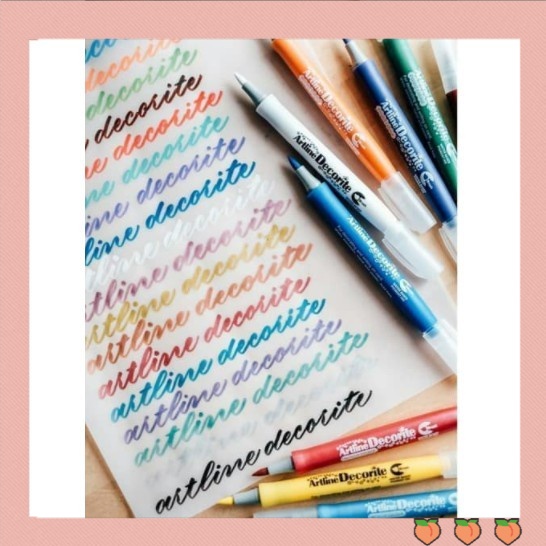 decorite
decorite
decorite
ne decorite
ne decorite
ine decorite
line decorite
line decorite
tline decorite
artline decorite
artline decorite
artline decorite
artline decorite
artline decorite
artline decorite
artline decorite
Artline Decorite
Artline Decorite
Artline Decorite
Artline Decorite
Artline Decorite
Artline Decorite
Artline Decorite
Artline Decorite